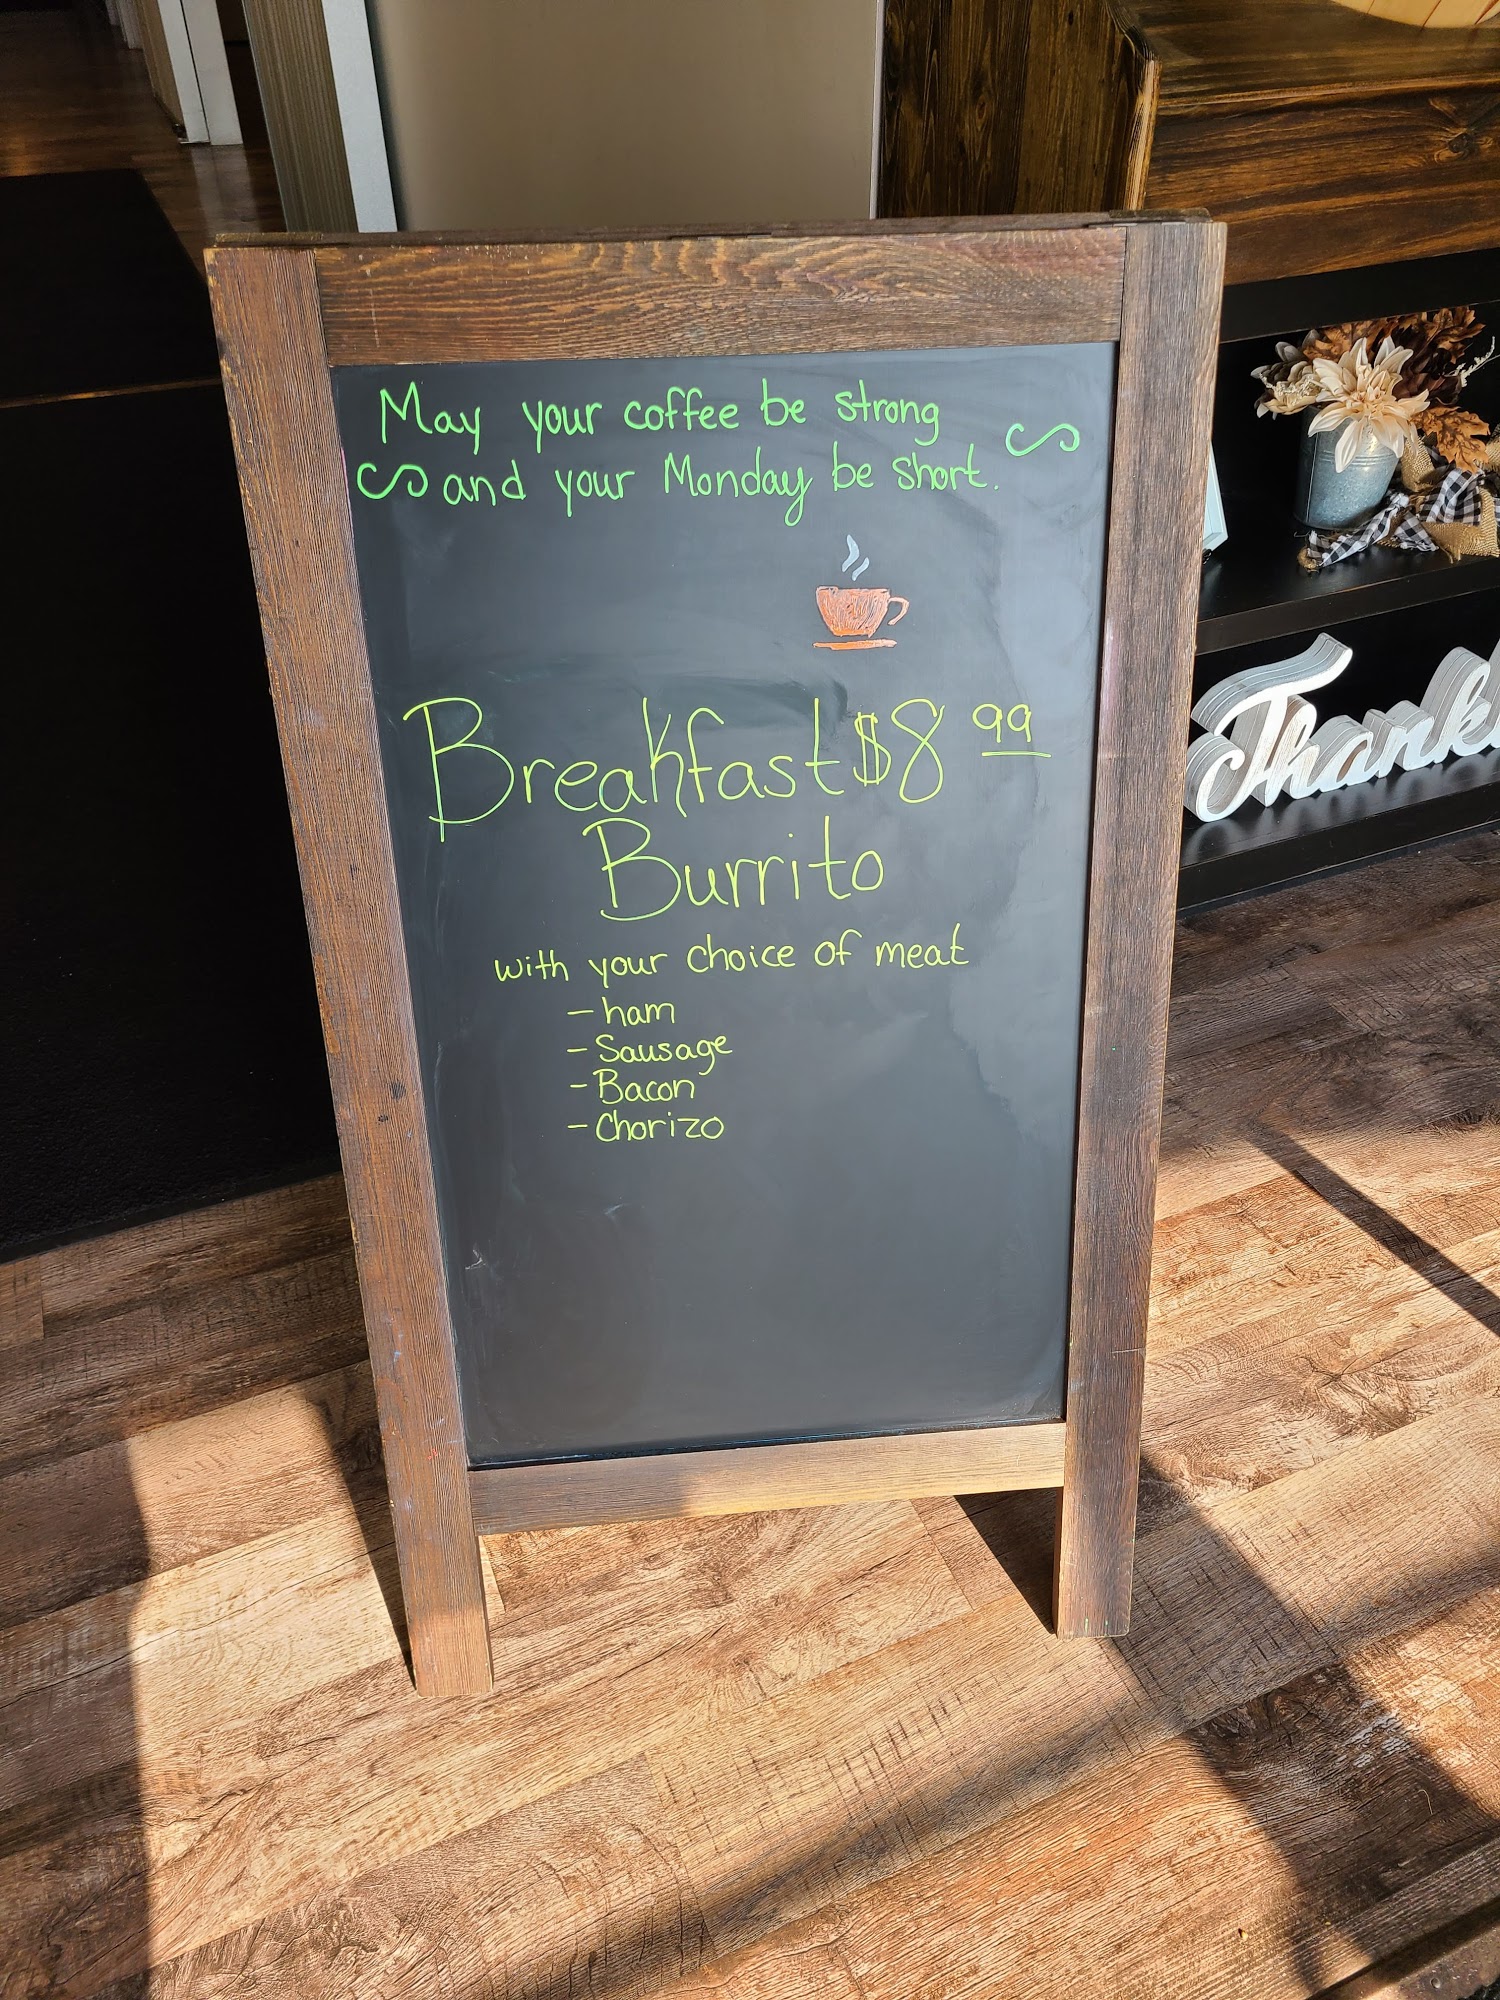 May your coffee be strong
and your Monday be short.
Breakfast $8.99
Burrito
with your choice of meat
- ham
- Sausage
- Bacon
- Chorizo